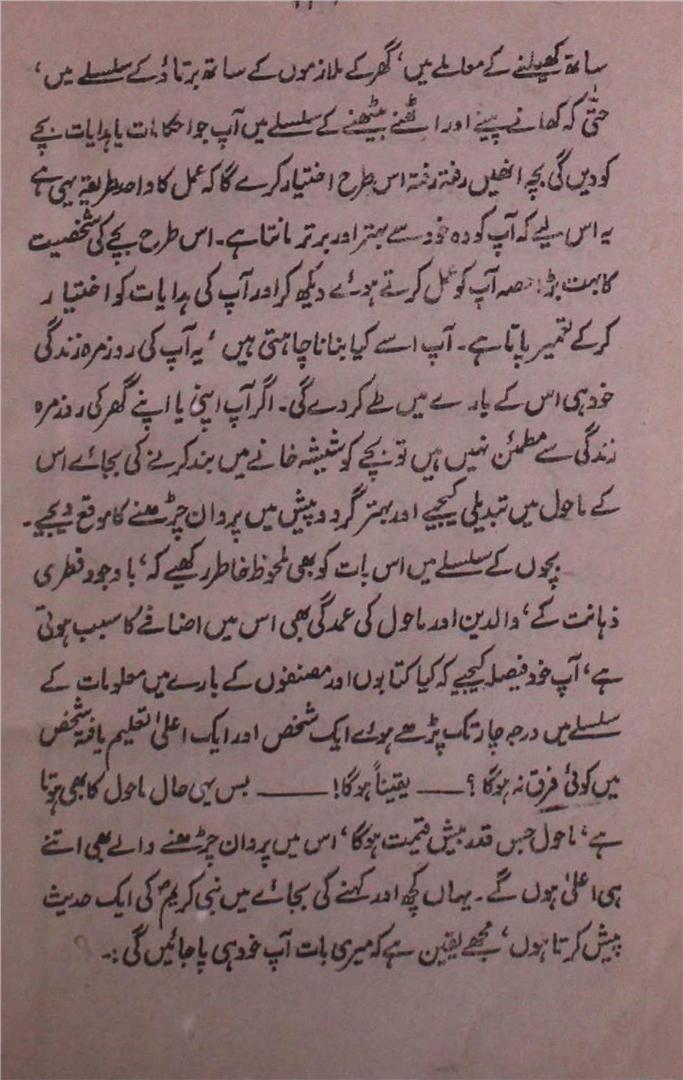 ساتھ کھیلنے کے معاملے میں، گھر کے ملازموں کے ساتھ برتاؤ کے سلسلے میں،
حتیٰ کہ کھانے پینے اور اٹھنے بیٹھنے کے سلسلے میں آپ جو احکامات یا ہدایات بچے
کو دیں گی بچہ انھیں رفتہ رفتہ اس طرح اختیار کرے گا کہ عمل کا واحد طریقہ یہی ہے
یہ اس لیے کہ آپ کو وہ خود سے بہتر اور برتر مانتا ہے۔ اس طرح بچے کی شخصیت
کا بہت بڑا حصہ آپ کو عمل کرتے ہوئے دیکھ کر اور آپ کی ہدایات کو اختیار
کرکے تعمیر پاتا ہے۔ آپ اسے کیا بنانا چاہتی ہیں، یہ آپ کی روزمرہ زندگی
خود ہی اس کے بارے میں طے کردے گی۔ اگر آپ اپنی یا اپنے گھر کی روزمرہ
زندگی سے مطمئن نہیں ہیں تو بچے کو شیشہ خانے میں بند کرنے کی بجائے اس
کے ماحول میں تبدیلی کیجیے اور بہتر گرد و پیش میں پروان چڑھنے کا موقع دیجیے۔
بچوں کے سلسلے میں اس بات کو بھی ملحوظ خاطر رکھیے کہ، باوجود فطری
ذہانت کے، والدین اور ماحول کی عمدگی بھی اس میں اضافے کا سبب ہوتی
ہے، آپ خود فیصلہ کیجیے کہ کیا کتابوں اور مصنفوں کے بارے میں معلومات کے
سلسلے میں درجہ چار تک پڑھے ہوئے ایک شخص اور ایک اعلیٰ تعلیم یافتہ شخص
میں کوئی فرق نہ ہوگا؟ —— یقیناً ہوگا! —— بس یہی حال ماحول کا بھی ہوتا
ہے، ماحول جس قدر بیش قیمت ہوگا، اس میں پروان چڑھنے والے بھی اتنے
ہی اعلیٰ ہوں گے۔ یہاں کچھ اور کہنے کی بجائے میں نبی کریمؐ کی ایک حدیث
پیش کرتا ہوں، مجھے یقین ہے کہ میری بات آپ خود ہی پا جائیں گی :۔